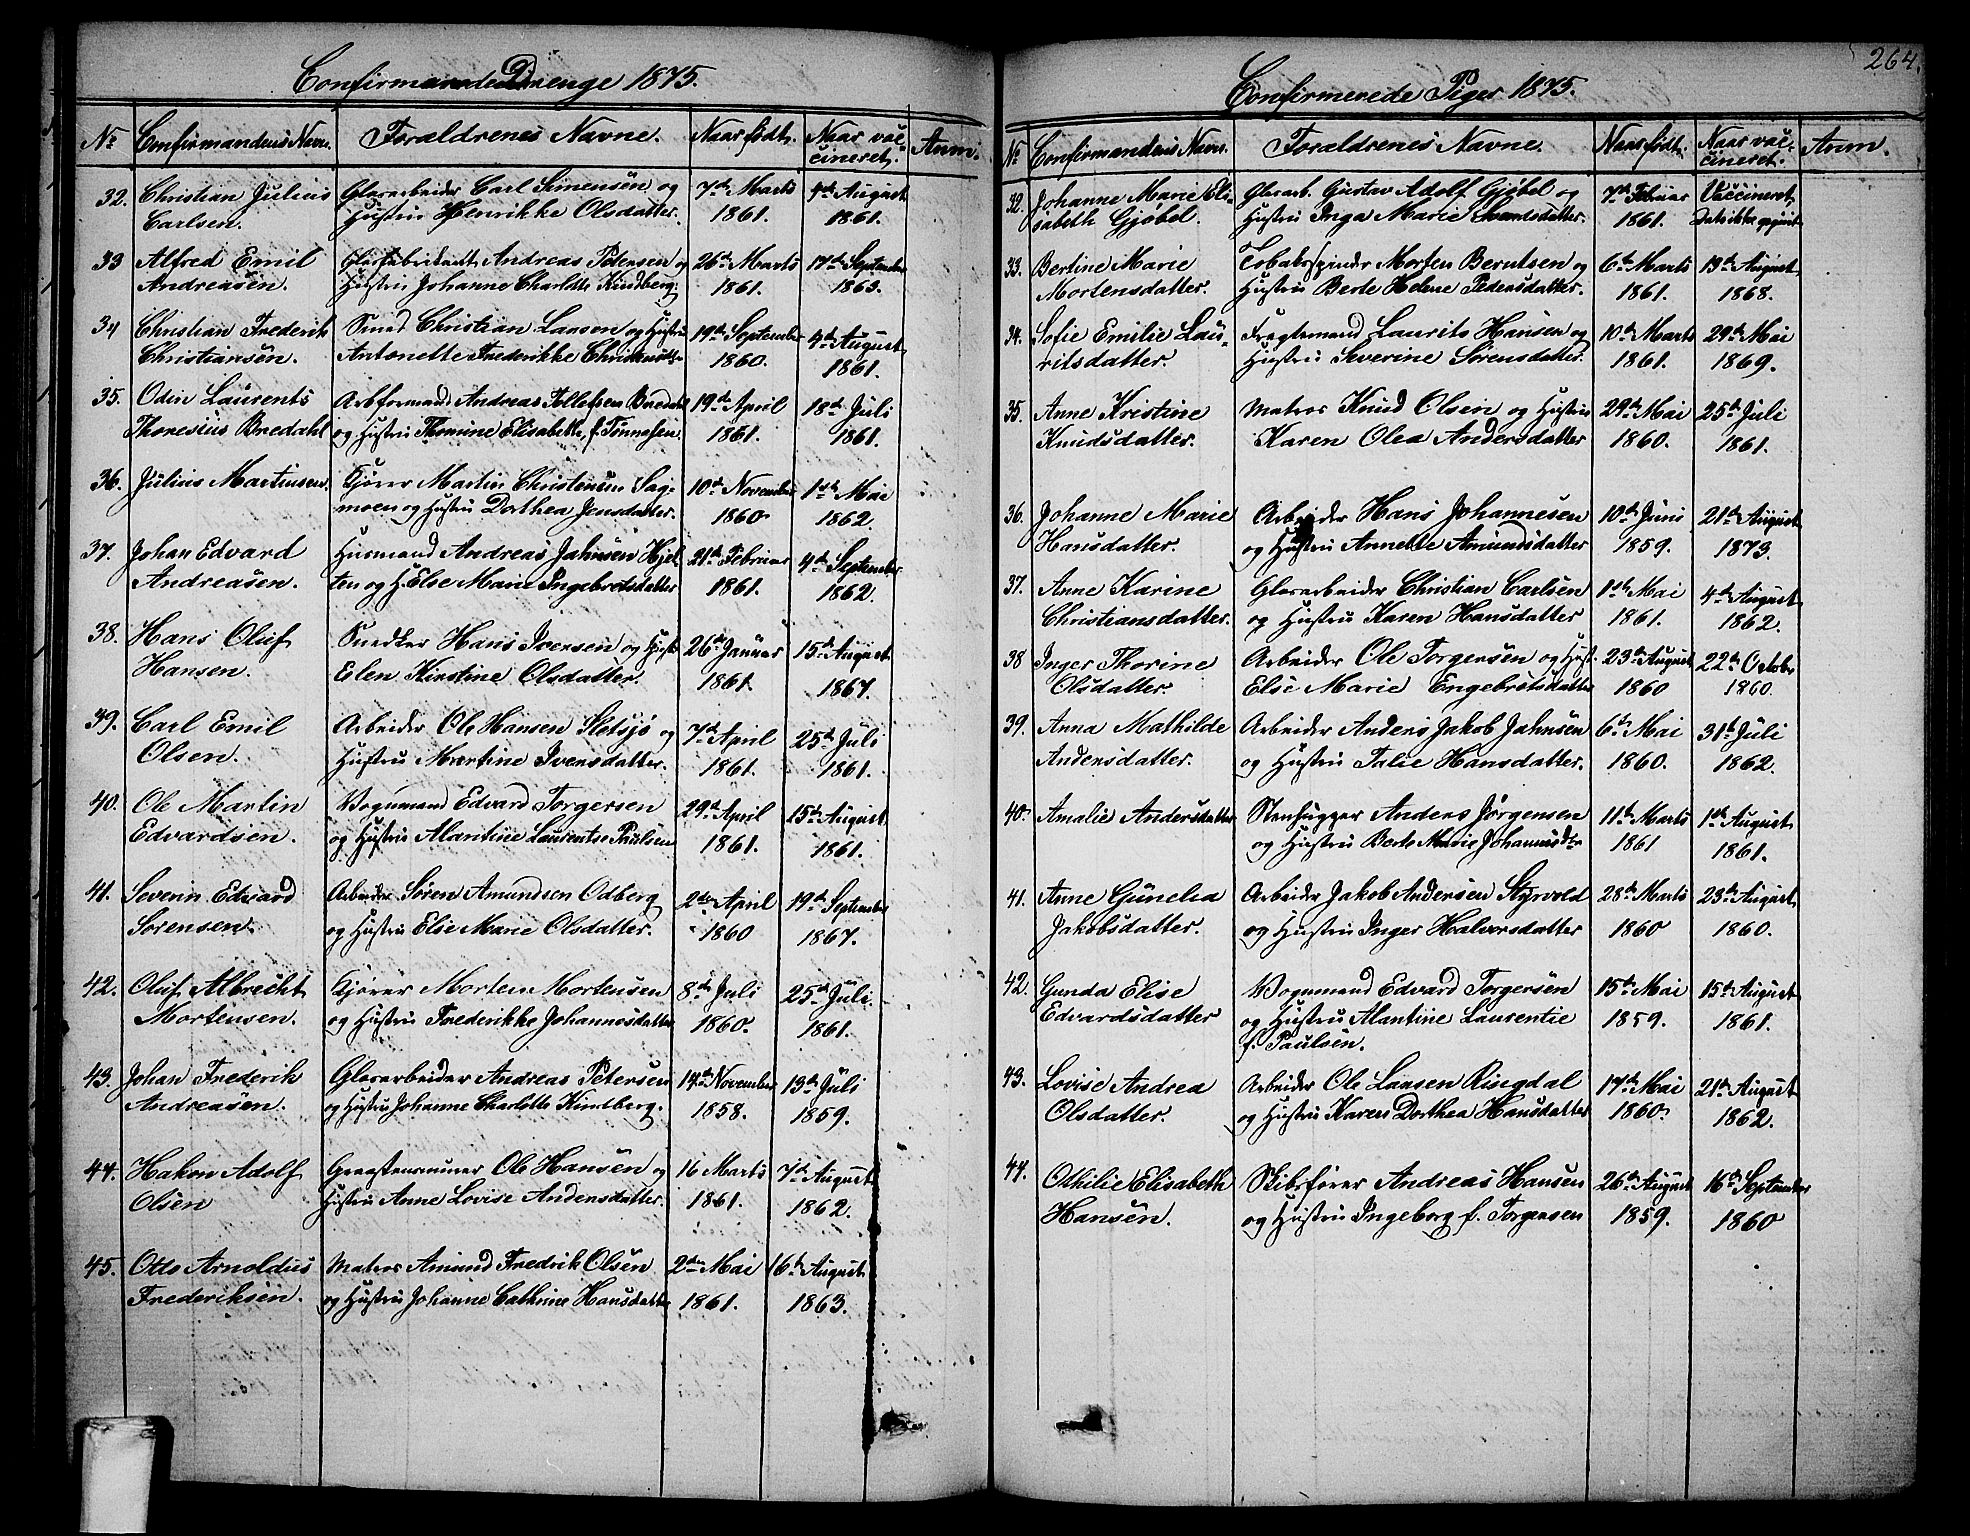 Confirmerede Drenge 1875.
No Confirmandens Navn. Forældrenes Navne. Naar født. Naar vac-
cineret. Anm.
32. Christian Julius Glasarbeider Carl Simensen og 7de Marts 4de August
Carlsen. Hustru Henrikke Olsdatter. 1861. 1861.
33 Alfred Emil Glasfabrikant Andreas Petersen og 26de Marts 17de September
Andreasen. Hustru Johanne Charlotte Kindberg. 1861. 1863.
34 Christian Frederik Smed Christian Larsen og Hustru 19de September 4de August
Christiansen. Antonette Frederikke 1860. 1861.
35. Odin Laurents Arbformand Andreas Tollefsen Bredahl 19de April 18de Juli
Thoresius Bredahl og Hustru Thomine Elisabeth, f. Tønnesen. 1861. 1861.
36. Julius Martinsen. Kjører Martin Christensen Sag- 10de November 1ste Mai
moen og Hustru Dorthea Jensdatter. 1860. 1862.
37. Johan Edvard Husmand Andreas Jahnsen Hjel- 21de Februar 4de September
Andreasen. ten og H Else Marie Ingebretsdatter 1861. 1862.
38. Hans Oluf Snedker Hans Iversen og Hust. 26de Januar 15de August
Hansen. Elen Kirstine Olsdatter. 1861. 1867.
39. Carl Emil Arbeider Ole Hansen Sletsjø og 7de April 25de Juli
Olsen. Hustru Martine Iversdatter. 1861. 1861.
40. Ole Martin Vognmand Edvard Torgersen 29de April 15de August
Edvardsen. og Hustru Alantine Laurentse Paulsen 1861. 1861.
41. Severin Edvard Arbeider Søren Amundsen Odberg 2den April 19de September
Sørensen. og Hustru Elise Marie Olsdatter. 1860 1867.
42. Oluf Albrecht Kjører Morten Mortensen 8de Juli 25de Juli
Mortensen. og Hustru Frederikke Johannesdatter 1860. 1861.
43. Johan Frederik Glasarbeider Andreas Petersen 14de November 13de Juli
Andreasen. og Hustru Johanne Charlotte Kindberg. 1858. 1859.
44. Hakon Adolf Graastensmurer Ole Hansen og 16 Marts 7de August
Olsen Hustru Anne Lovise Andersdatter. 1861. 1862.
45. Otto Arnoldius Matros Amund Fredrik Olsen 2den Mai 16de August
Frederiksen. og Hustru Johanne Cathrine Hansdatter 1861. 1863.
264.
Confirmerede Piger 1875.
No Confirmandens Navn. Forældrenes Navne. Naar født. Naar vac-
cineret. Anm.
32. Johanne Marie Eli- Glasarb. Gustav Adolf Gjøbel og 7de Februar Vaccineret
sabeth Gjøbel. Hustru Inga Marie 1861. Dato ikke opgivet
33. Bertine Marie Tobakspinder Morten Berntsen og 6te Marts 13de August
Mortensdatter. Hustru Berte Helene Pedersdatter. 1861. 1868.
34. Sofie Emilie Lau- Fragtemand Laurits Hansen og 10de Marts 29de Mai
ritsdatter. Hustru Severine Sørensdatter. 1861. 1869.
35. Anne Kristine Matros Knud Olsen og Hustru 29de Mai 25de Juli
Knudsdatter. Karen Olea Andersdatter 1860. 1861.
36. Johanne Marie Arbeider Hans Johannesen 10de Juni 21de August
Hansdatter. og Hustru Annette Amundsdatter 1859. 1873.
37. Anne Karine Glasarbeider Christian Carlsen 1ste Mai 4de August
Christiansdatter. og Hustru Karen Hansdatter 1861. 1862.
38 Inger Thorine Arbeider Ole Torgersen og Hust. 23de August 22de Octobr
Olsdatter. Elise Marie Engebretsdatter 1860 1860.
39. Anna Mathilde Arbeider Anders Jakob Jahnsen 6te Mai 31te Juli
Andersdatter. og Hustru Talie Hansdatter. 1860. 1862.
40. Amalie Andersdatter Stenhugger Anders Jørgensen 11te Marts 1ste August
og Hustru Berte Marie Johannesdtr 1861 1861.
41. Anne Gunelia Arbeider Jakob Andersen Styrvold 28de Marts 23de August
Jakobsdatter. og Hustru Inger Halvorsdatter 1860 1860.
42. Gunda Elise Vognmand Edvard Torgersen 15de Mai 15de August
Edvardsdatter og Hustru Alantine Laurentie 1859. 1861.
f. Paulsen.
43. Lovise Andrea Arbeider Ole Larsen Ringdal 17de Mai 21de August
Olsdatter. og Hustru Karen Dorthea Hansdatter 1860. 1862.
44. Othilie Elisabeth Skibsfører Andreas Hansen 26de August 16de September
Hansen. og Hustru Ingeborg f. Torgersen 1859. 1860